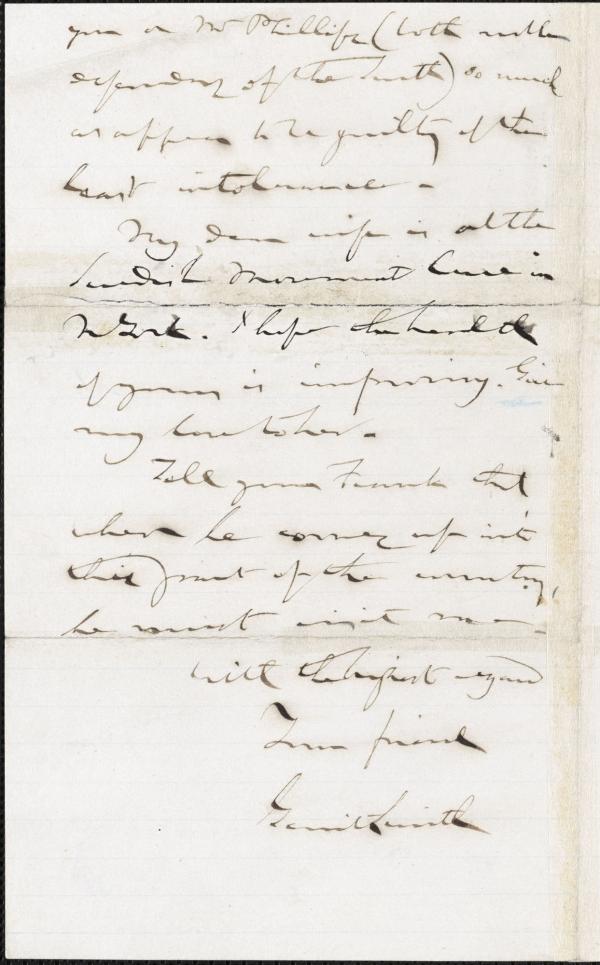 you or Mr Phillips (both noble
defenders of the truth) so much
as appear to be guilty of the
least intolerance -
My dear wife is at the
Swedish Movement Cure in
N York. I hope the health
of yours is improving. Give
my love to her -
Tell your Frank that
when he comes up into
this part of the country,
he must visit me -
With the highest regard
Your friend
Gerrit Smith